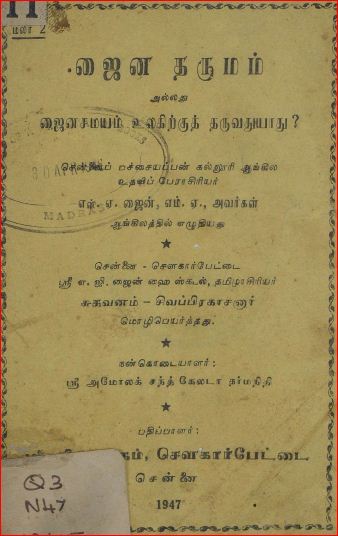 11
மலா 2
ஜைன தருமம்
அல்லது
ஜைனசமயம் உலகிற்குத் தருவதுயாது?
சென்னைப் பச்சையப்பன் கல்லூரி ஆங்கில
உதவிப் பேராசிரியர்
எஸ். ஏ. ஜைன், எம். ஏ., அவர்கள்
ஆங்கிலத்தில் எழுதியது
சென்னை - சௌகார்பேட்டை
ஸ்ரீ ஏ. ஜி. ஜைன் ஹை ஸ்கூல், தமிழாசிரியர்
சுகவனம் - சிவப்பிரகாசனார்
மொழிபெயர்த்தது.
நன்கொடையாளர்:
ஸ்ரீ அமோலக் சந்த் கேலடா நர்மநிதி
பதிப்பாளர்:
சௌகார்பேட்டை
சென்னை
1947
MADRAS
Q3
N47